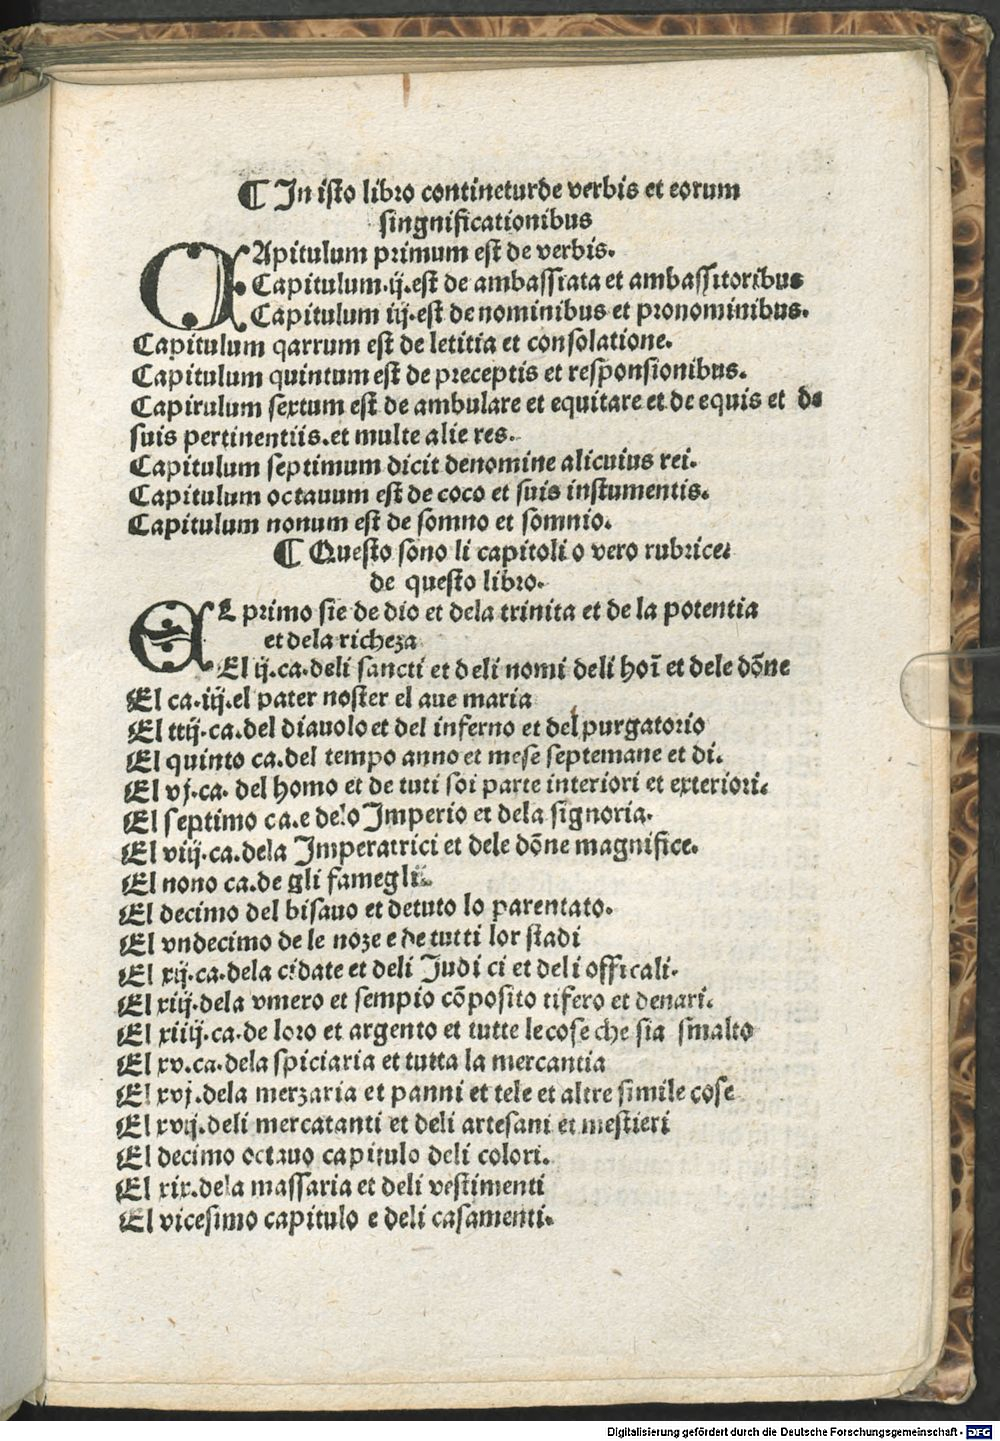 ¶ In isto libro contineturde verbis et eorum
singnificationibus
CApitulum primum est de verbis.
Capitulum.ij.est de ambassiata et ambassitoribus
Capitulum iij.est de nominibus et pronominibus.
Capitulum qarrum est de letitia et consolatione.
Capitulum quintum est de preceptis et responsionibus.
Capirulum sextum est de ambulare et equitare et de equis et de
suis pertinentiis.et multe alie res.
Capitulum septimum dicit denomine alicuius rei.
Capitulum octauum est de coco et suis instumentis.
Capitulum nonum est de somno et somnio.
¶ Questo sono li capitoli o vero rubrice.
de questo libro.
EL primo sie de dio et dela trinita et de la potentia
et dela richeza
El ij.ca.deli sancti et deli nomi deli hoī et dele dōne
El ca.iij.el pater noster el aue maria
El ttij.ca.del diauolo et del inferno et del purgatorio
El quinto ca.del tempo anno et mese septemane et di.
El vj.ca. del homo et de tuti soi parte interiori et exteriori.
El septimo ca.e delo Imperio et dela signoria.
El viij.ca.dela Imperatrici et dele dōne magnifice.
El nono ca.de gli famegli.
El decimo del bisauo et detuto lo parentato.
El vndecimo de le noze e de tutti lor stadi
El xij.ca.dela cidate et deli Judi ci et deli officali.
El xiij.dela vmero et sempio cōposito tifero et denari.
El xiiij.ca.de loro et argento et tutte le cose che sia smalto
El xv.ca.dela spiciaria et tutta la mercantia
El xvj.dela merzaria et panni et tele et altre simile cose
El xvij.deli mercatanti et deli artesani et mestieri
El decimo octauo capitulo deli colori.
El xix.dela massaria et deli vestimenti
El vicesimo capitulo e deli casamenti.
Digitalisierung gefördert durch die Deutsche Forschungsgemeinschaft - DFG